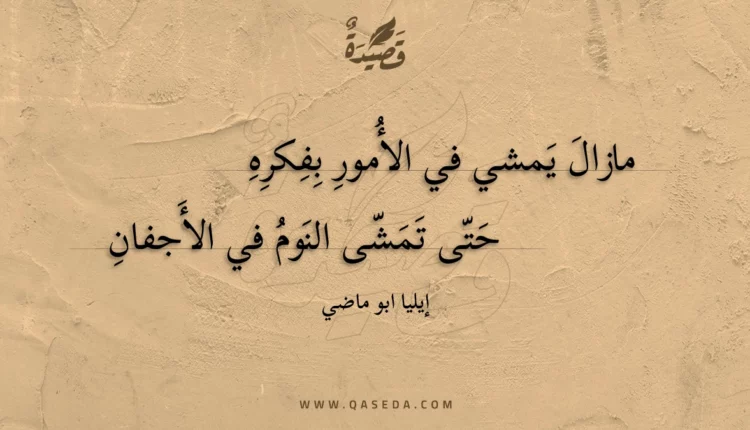 قَصِيدَةٌ
مازالَ يَمشي في الأُمورِ بِفِكرِهِ
حَتّى تَمَشّى النَومُ في الأَجفانِ
إيليا ابو ماضي
WWW.QASEDA.COM